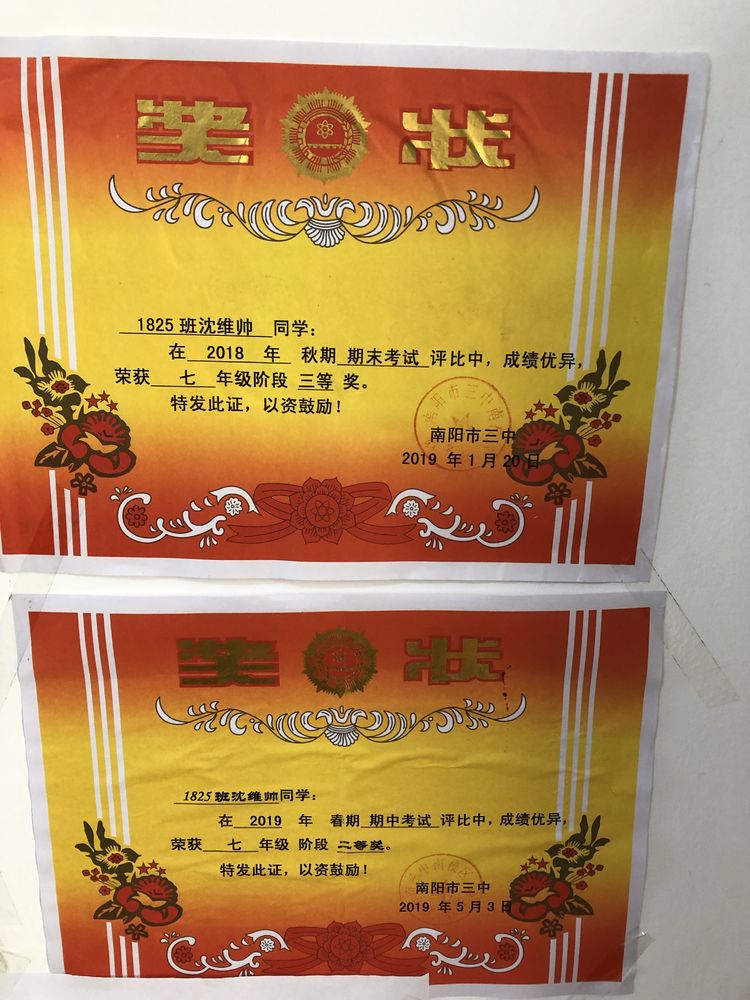 奖状
1825 班沈维帅 同学：
在 2018 年 秋期 期末考试 评比中，成绩优异，
荣获 七 年级阶段 三等 奖。
特发此证，以资鼓励！
南阳市三中
2019 年 1 月 20 日
奖状
1825 班沈维帅同学：
在 2019 年 春期 期中考试 评比中，成绩优异，
荣获 七 年级 阶段 二等奖。
特发此证，以资鼓励！
南阳市三中
2019 年 5 月 3 日